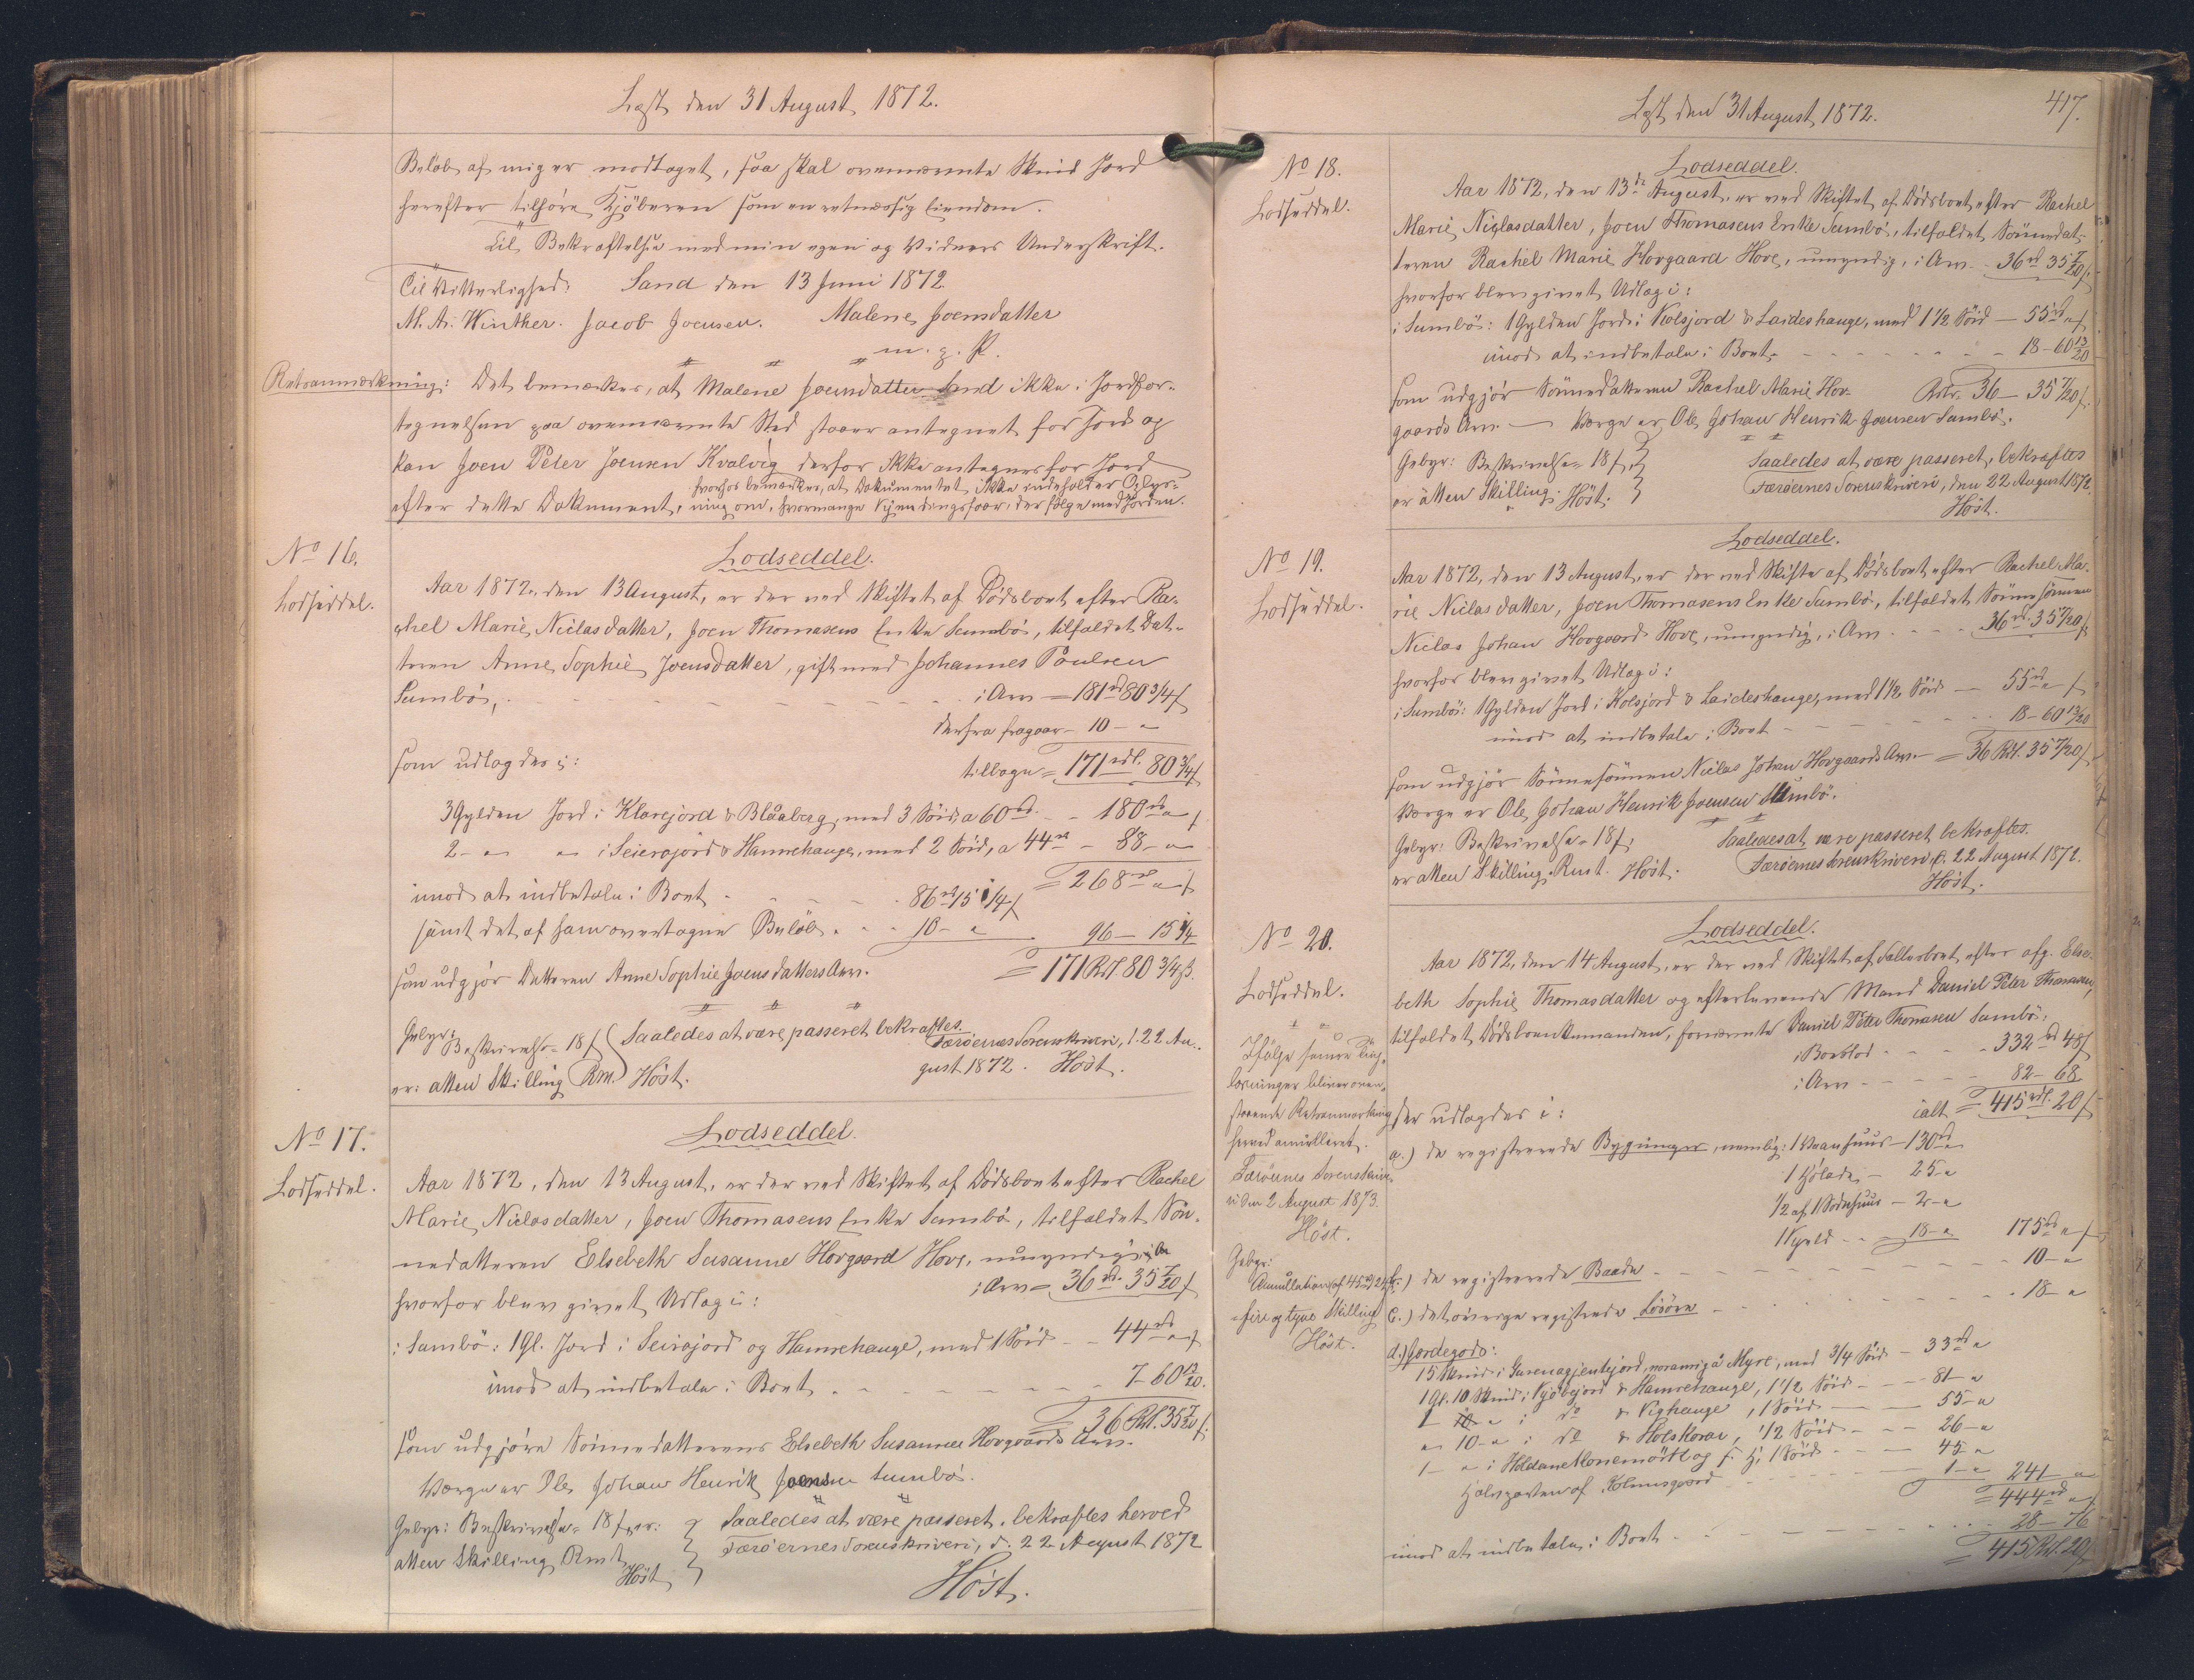 Læst den 31 August 1872.
Beløb af mig er modtaget, saa skal ovennævnte Skind Jord
herefter tilhøre Kjøberen som en retmæssig Eiendom.
Til Bekræftelse med min egen og Vidners Underskrift.
Til Vitterlighed: Sand den 13 Juni 1872.
M. A. Winther. Jacob Joensen. Malene Joensdatter
m. p. P.
Retsanmærkning: Det bemærkes, at Malene Joensdatter Sand ikke i Jordfor-
tegnelsen paa ovennævnte Sted staaer antegnet for Jord og
kan Joen Peter Joensen Kvalvig derfor ikke antegnes for Jord
efter dette Dokument, hvorhos bemærkes, at Dokumentet ikke indeholder Oplys-
ning om, hvormange Eiendingsfaar, der følge med Jorden.
No 16.
Lodseddel.
Lodseddel.
Aar 1872, den 13 August, er der ved Skiftet af Dødsboet efter Ra-
chel Marie Niclasdatter, Joen Thomasens Enke Sumbø, tilfaldet Dat-
teren Anne Sophie Joensdatter, gift med Johannes Poulsen
Sumbø, i Arv = 181 rd 80 3/4 ß
derfra fragaar - 10 - "
som udlagdes i: tilbage = 171 rdl. 80 3/4 ß
3 Gylden Jord i Klarejord & Blåaberg, med 3 Söid, a 60 rd - 180 rd " ß
2 - " " i Seierajord & Hamrehauge, med 2 Söid, a 44 rd - 88 - "
= 268 rd " ß
imod at indbetale i Boet - 86 rd 15 1/4 ß
samt det af ham overtagne Beløb - 10 - " 96 - 15 1/4
som udgjör Datteren Anne Sophie Joensdatters Arv. = 171 Rdl 80 3/4 ß.
Gebyr: Beskrivelse = 18 ß Saaledes at være passeret bekræftes.
er: atten Skilling Rm. Höst. Færöernes Sorenskriveri, d. 22 Au-
gust 1872. Höst.
No 17.
Lodseddel.
Lodseddel.
Aar 1872, den 13 August, er der ved Skiftet af Dødsboet efter Rachel
Marie Niclasdatter, Joen Thomasens Enke Sumbø, tilfaldet Søn-
nedatteren Elsebeth Susanne Hovgaard Hove, umyndig,
i Arv = 36 rd. 35 7/20 ß
hvorfor blev givet Udlag i:
i Sumbø: 1 Gl. Jord i Seirajord og Hamrehauge, med 1 Söid - 44 rd " ß
imod at indbetale i Boet - 7 - 60 13/20.
= 36 Rdl. 35 7/20 ß.
som udgjöre Sönnedatterens Elsebeth Susanne Hovgaards Arv.
Værge er Ole Johan Henrik Joensen Sumbø.
Gebyr: Beskrivelse = 18 ß, er: Saaledes at være passeret, bekræftes herved
atten Skilling Rmt. Færöernes Sorenskriveri, d. 22 August 1872
Höst Höst.
Læst den 31 August 1872. 417.
No 18.
Lodseddel.
Lodseddel.
Aar 1872, den 13de August, er ved Skiftet af Dødsboet efter Rachel
Marie Niclasdatter, Joen Thomasens Enke Sumbø, tilfaldet Sönnedat-
teren Rachel Marie Hovgaard Hove, umyndig, i Arv - 36 rd 35 7/20 ß.
hvorfor blev givet Udlag i:
i Sumbø: 1 Gylden Jord i Kolsjord & Laideshauge, med 1 1/2 Söid - 55 rd " ß
imod at indbetale i Boet - 18 - 60 13/20
som udgjör Sönnedatteren Rachel Marie Hov- Rdlr. 36 - 35 7/20 ß.
gaards Arv. - Værge er Ole Johan Henrik Joensen Sumbø.
Gebyr: Beskrivelse = 18 ß, Saaledes at være passeret, bekræftes
er atten Skilling. Höst. Færöernes Sorenskriveri, den 22 August 1872.
Höst.
No 19.
Lodseddel.
Lodseddel.
Aar 1872, den 13 August, er der ved Skifte af Dødsboet efter Rachel Ma-
rie Niclasdatter, Joen Thomasens Enke Sumbø, tilfaldet Sönnesönnen
Niclas Johan Hovgaard Hove, umyndig, i Arv - 36 rd. 35 7/20 ß
hvorfor blev givet Udlag i:
i Sumbø: 1 Gylden Jord i Kolsjord & Laideshauge, med 1 1/2 Söid - 55 rd " ß
imod at indbetale i Boet - 18 - 60 13/20
som udgjör Sönnesönnen Niclas Johan Hovgaards Arv. = 36 Rdl. 35 7/20 ß
Værge er Ole Johan Henrik Joensen Sumbø.
Gebyr: Beskrivelse = 18 ß, Saaledes at være passeret bekræftes.
er atten Skilling Rmt. Höst. Færöernes Sorenskriveri, d. 22 August 1872.
Höst.
No 20.
Lodseddel.
Lodseddel.
Aar 1872, den 14 August, er der ved Skiftet af Fællesboet efter afg. Else-
beth Sophie Thomasdatter og efterlevende Mand Daniel Peter Thomasen,
tilfaldet Dødsboenkemanden, fornævnte Daniel Peter Thomasen Sumbø:
i Boeslod - 332 rd 48 ß
i Arv - 82 - 68
ialt = 415 rdl. 20 ß
der udlagdes i:
a.) de registrerede Bygninger, nemlig: 1 Braahuus - 130 rd
1 Hjölade - 25 - "
1/2 af 1 Sodnhuus - 2 - "
1 Hjeld - 18 - " 175 rd " ß
b.) de registrerede Baade - 10 - "
c.) det øvrige registrede Lösöre - 18 - "
d.) Jordegods:
15 Skind i Garenagjentejord, noranvigå Myre, med 3/4 Söid - 33 rd "
1 Gl. 10 Skind i Kjøbejord & Hamrehauge, 1 1/2 Söid - 81 - "
1 - " i do & Vighauge, 1 Söid - 55 - "
" 10 - " i do & Holskorar, 1/2 Söid - 26 - "
1 - " i 1 Söid - 45 - "
Hjalvparten af 1 - " 241 - "
= 444 rd " ß
imod at indbetale i Boet - 28 - 76
= 415 Rdl. 20 ß
Ifølge senere Ting-
læsninger bliver oven-
staaende Retsanmærkning
herved annulleret.
Færöernes Sorenskrive-
ri den 2 August 1873.
Höst.
Gebyr:
Annullation af 45 24 ß
fire og tyve Skilling
Höst.